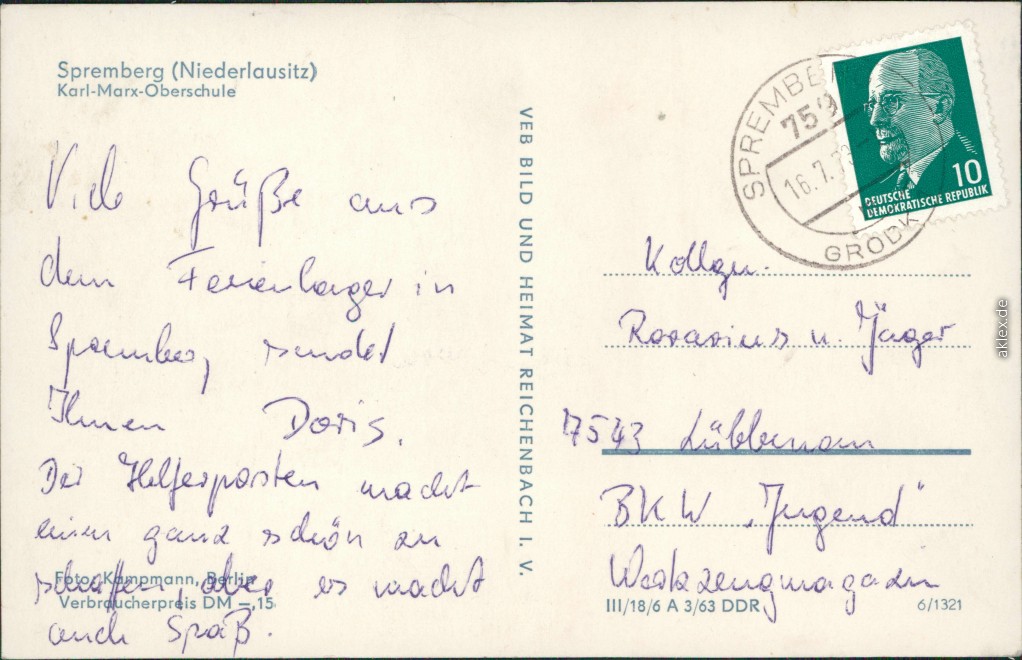 Spremberg (Niederlausitz)
Karl-Marx-Oberschule
Viele Grüße aus
dem Ferienlager in
Spremberg sendet
Ihnen Doris.
Der Helferposten macht
einen ganz schön zu
schaffen, aber es macht
auch Spaß.
Foto: Kampmann, Berlin
Verbraucherpreis DM -,15
VEB BILD UND HEIMAT REICHENBACH I. V.
SPREMBE
16.7.
GRODK
10
DEUTSCHE
DEMOKRATISCHE REPUBLIK
Kollgn.
Rosarius u. Jäger
7543 Lübbenau
BKW „Jugend"
Werkzeugmagazin
III/18/6 A 3/63 DDR
6/1321
aklex.de